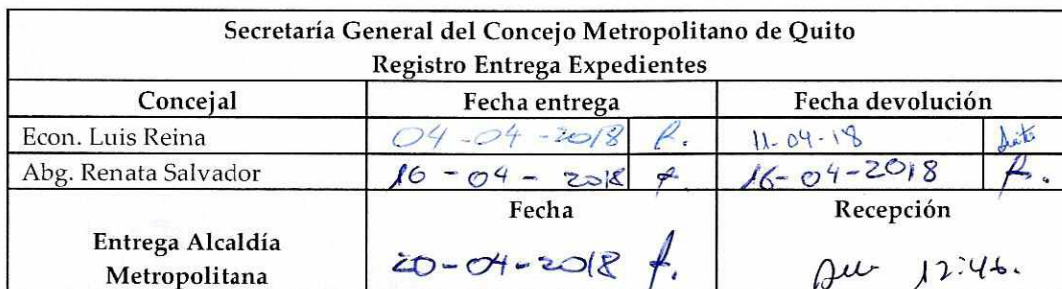 Secretaría General del Concejo Metropolitano de Quito
Registro Entrega Expedientes
Concejal Fecha entrega Fecha devolución
Econ. Luis Reina 04-04-2018 11-04-18
Abg. Renata Salvador 16-04-2018 16-04-2018
Fecha Recepción
Entrega Alcaldía
Metropolitana 20-04-2018 12:46.